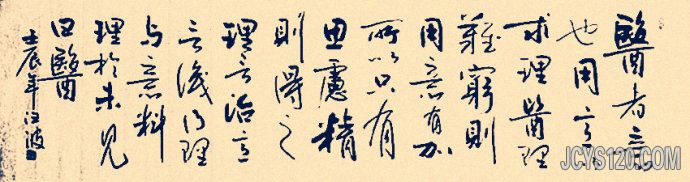 醫者意
也用意
求理醫理
難窮則
用意有加
所以只有
思慮精
則得之
理言治意
言後乃理
与意料
理於未見
曰醫
壬辰年江波
JCYS120.COM